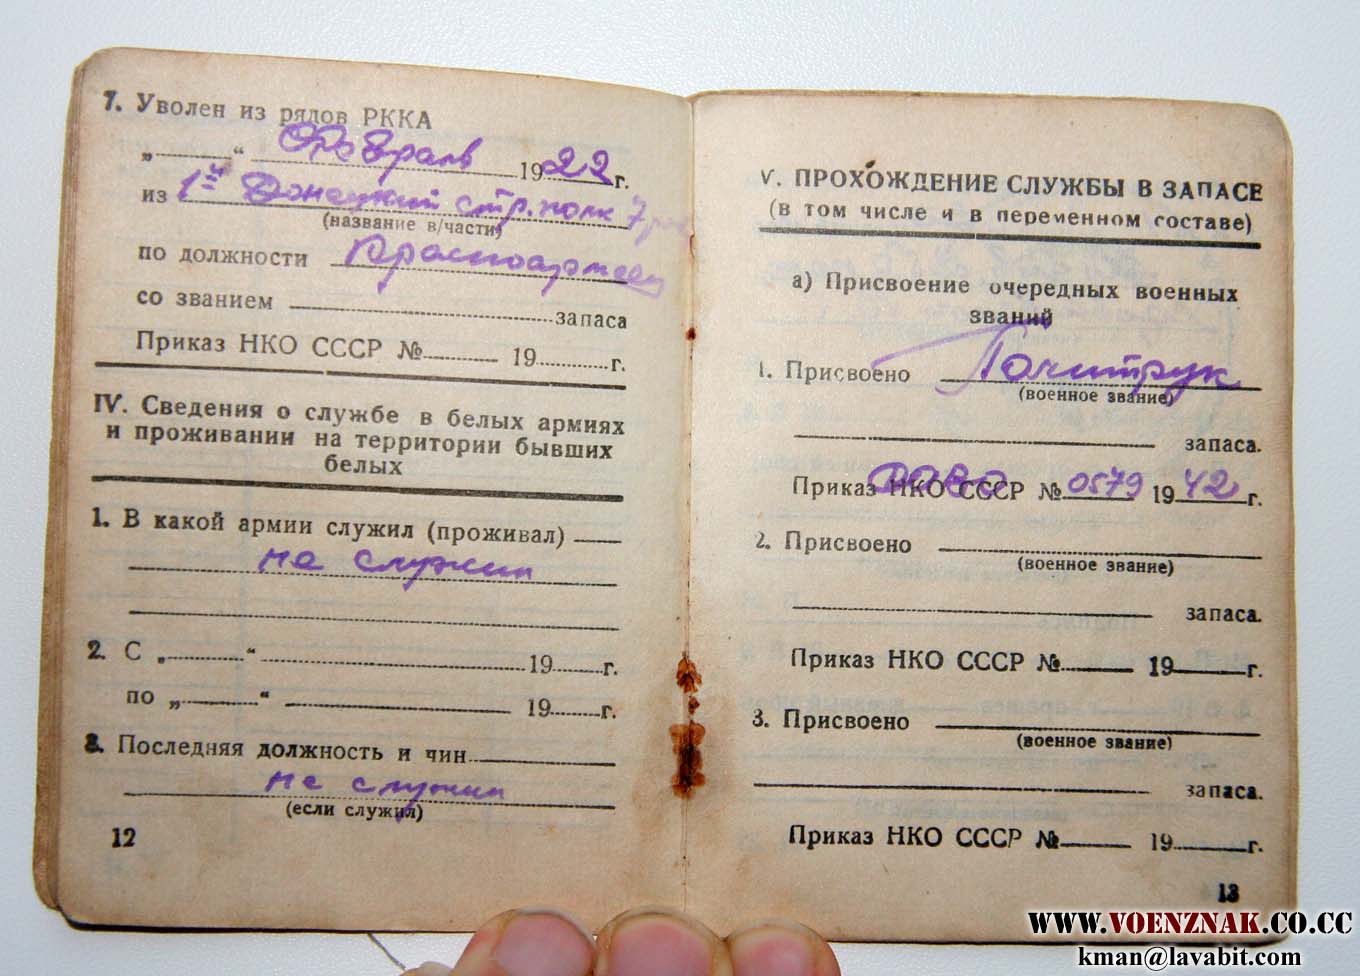 7. Уволен из рядов РККА
„ “ Февраль 1922 г.
из 1й Донецкий стр. полк 7
(название в/части)
по должности Красноармеец
со званием запаса
Приказ НКО СССР № 19 г.
IV. Сведения о службе в белых армиях
и проживании на территории бывших
белых
1. В какой армии служил (проживал)
не служил
2. С „ “ 19 г.
по „ “ 19 г.
3. Последняя должность и чин
не служил
(если служил)
12
V. ПРОХОЖДЕНИЕ СЛУЖБЫ В ЗАПАСЕ
(в том числе и в переменном составе)
а) Присвоение очередных военных
званий
1. Присвоено Политрук
(военное звание)
запаса.
Приказ НКО СССР № 0579 1942 г.
2. Присвоено
(военное звание)
запаса.
Приказ НКО СССР № 19 г.
3. Присвоено
(военное звание)
запаса.
Приказ НКО СССР № 19 г.
13
WWW.VOENZNAK.CO.CC
kman@lavabit.com